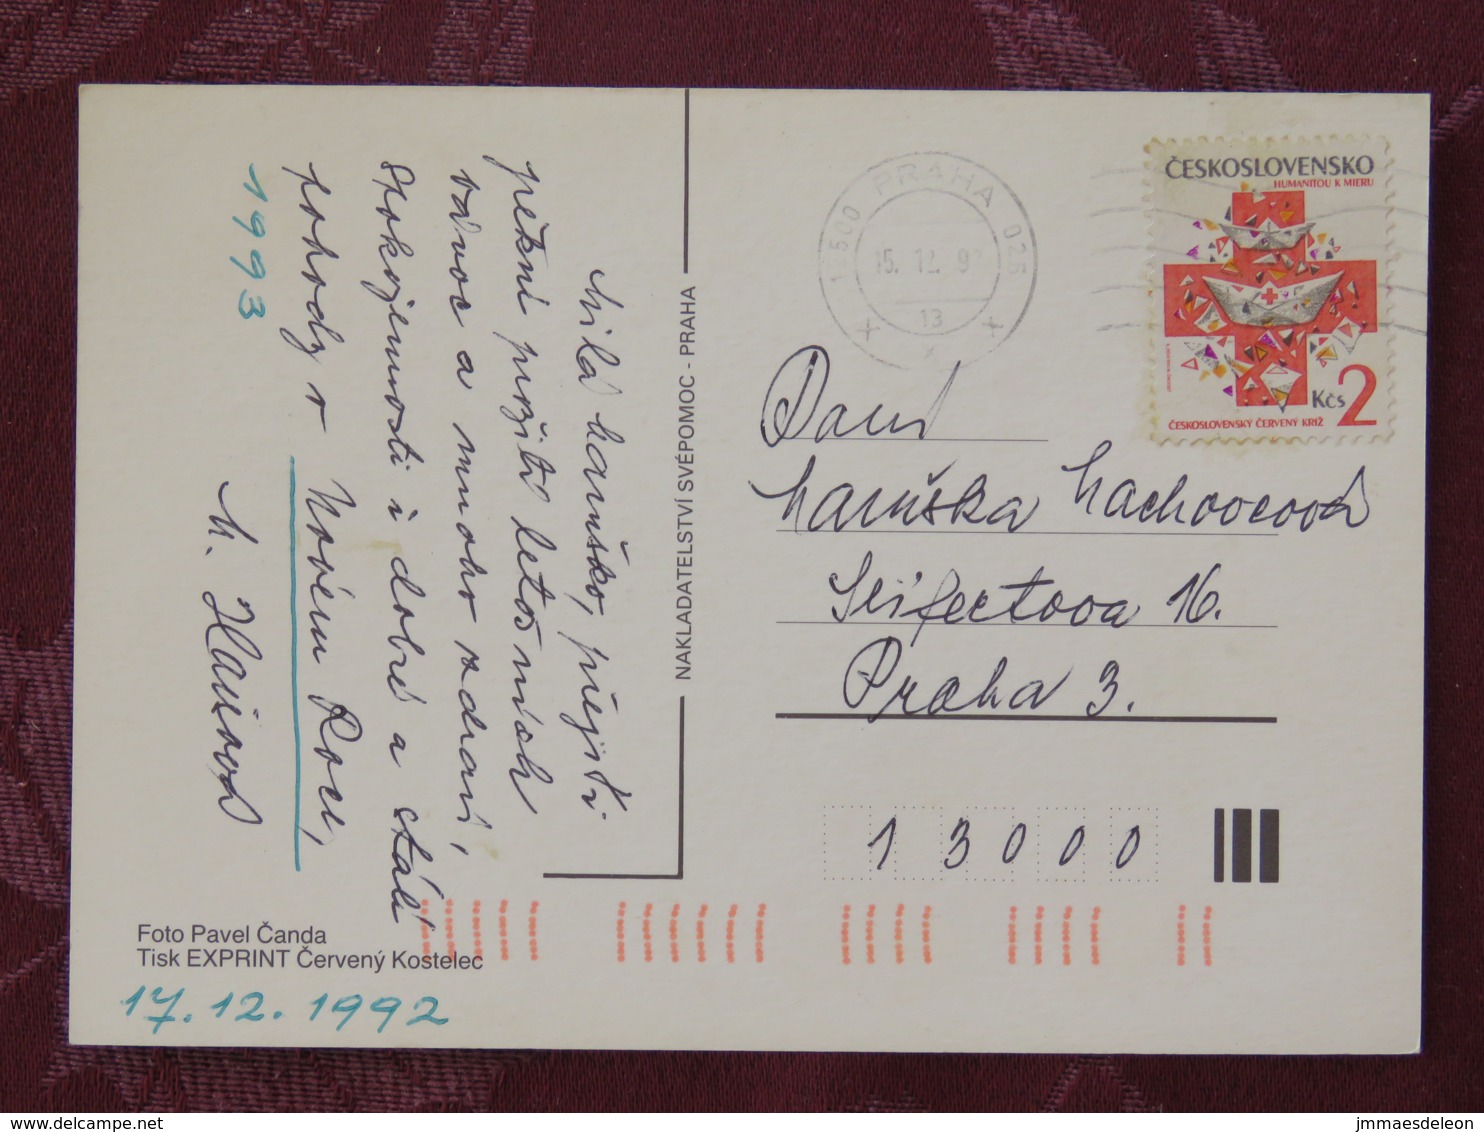 Milá Maruško, přeji Ti
pěkné prožití letošních
vánoc a mnoho zdraví,
spokojenosti i dobré a stálé
pohody v Novém Roce,
1993
M.
NAKLADATELSTVÍ SVÉPOMOC - PRAHA
1 500 PRAHA 025
15. 12. 92
13
ČESKOSLOVENSKO
HUMANITOU K MIERU
Kčs 2
ČESKOSLOVENSKÝ ČERVENÝ KRÍŽ
Paní
Maruška Machovcová
Seifertova 16.
Praha 3.
1 3 0 0 0
Foto Pavel Čanda
Tisk EXPRINT Červený Kostelec
17.12.1992
delcampe.net
jmmaesdeleon